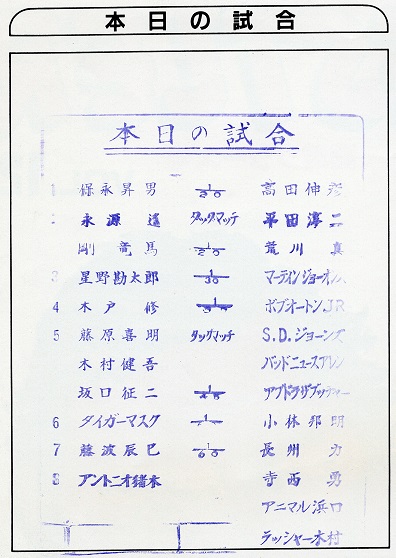 本日の試合
本日の試合
1 保永昇男 1/30 高田伸彦
2 永源遙 タッグマッチ 平田淳二
剛竜馬 1/20 荒川真
3 星野勘太郎 1/30 マーティンジョーンズ
4 木戸修 ボブオートンJR
5 藤原喜明 タッグマッチ S.D.ジョーンズ
木村健吾 バッドニュースアレン
坂口征二 1/45 アブドラザブッチャー
6 タイガーマスク 小林邦明
7 藤波辰巳 1/60 長州力
8 アントニオ猪木 寺西勇
アニマル浜口
ラッシャー木村